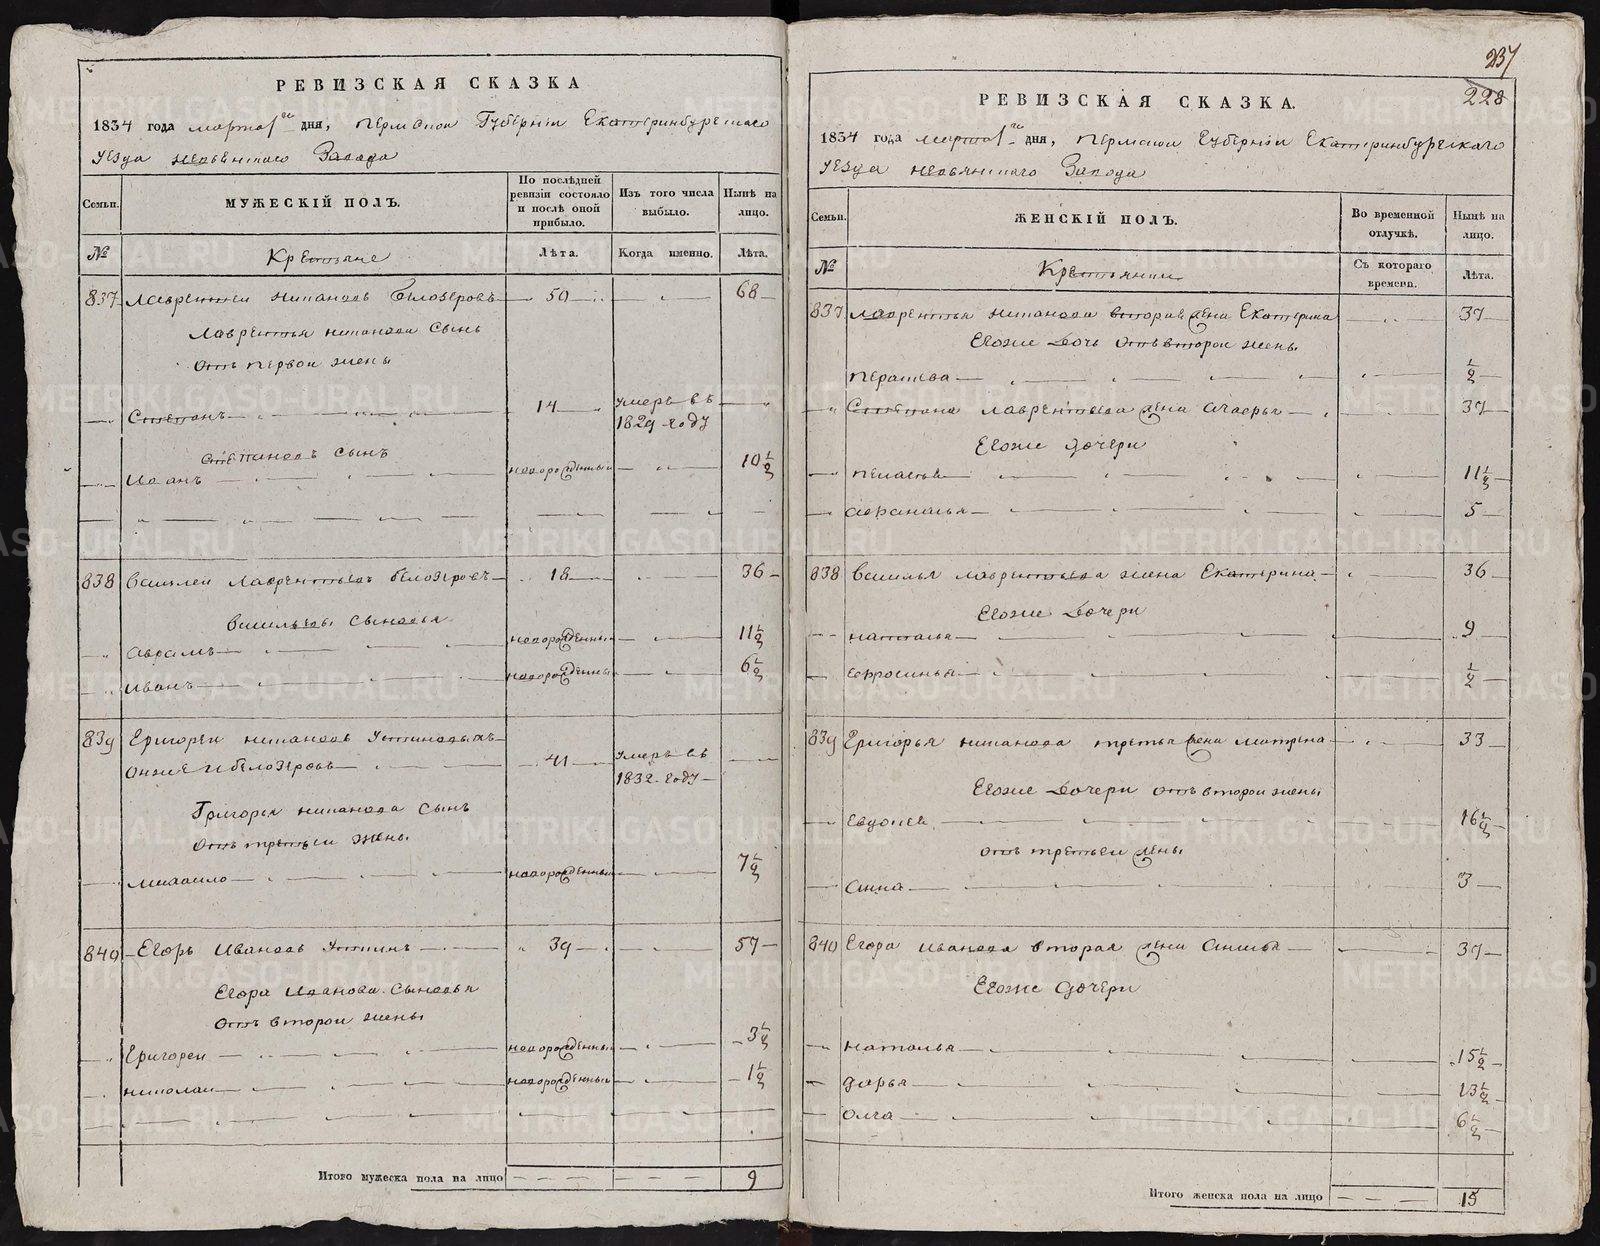 РЕВИЗСКАЯ СКАЗКА
1834 года марта 1го дня, Пермской Губернии Екатеринбургского
уезда Невьянского Завода
Семьи.
МУЖЕСКІЙ ПОЛЪ.
По послѣдней ревизіи состояло и послѣ оной прибыло.
Изъ того числа выбыло.
Нынѣ на лицо.
№
Крестьяне
Лѣта.
Когда именно.
Лѣта.
837 Лаврентей Белозеровъ 50 68
Лаврентья сынъ
отъ первой жены
Степанъ 14 умеръ въ 1829 году
Степановъ сынъ
Иванъ новорожденный 10 1/2
838 Василей Лаврентьевъ Белозеровъ 18 36
Васильевы сыновья
Аврамъ новорожденный 11 1/2
Иванъ новорожденный 6 1/2
839 Григорей Устиновыхъ
онже и Белозеровъ 41 умеръ въ 1832 году
Григорья сынъ
отъ третьей жены
Михайло новорожденный 7 1/2
840 Егоръ Ивановъ 39 57
Егора Иванова сыновья
отъ второй жены
Григорей новорожденный 3 1/2
Николай новорожденный 1 1/2
Итого мужеска пола на лицо 9
237
228
РЕВИЗСКАЯ СКАЗКА.
1834 года марта 1го дня, Пермской Губернии Екатеринбургскаго
уезда Невьянскаго Завода
Семьи.
ЖЕНСКІЙ ПОЛЪ.
Во временной отлучкѣ.
Нынѣ на лицо.
№
Крестьянки
Съ котораго времени.
Лѣта.
837 Лаврентья вторая жена Екатерина 37
Егоже дочь отъ второй жены
1/2
Степана Лаврентьева жена 37
Егоже дочери
Пелагея 11 1/2
Афанасья 5
838 Василья Лаврентьева жена Екатерина 36
Егоже дочери
Наталья 9
Ефросинья 1/2
839 Григорья третья жена Матрена 33
Егоже дочери отъ второй жены
Евдокея 16 1/2
отъ третьей жены
Анна 3
840 Егора Иванова вторая жена Анисья 37
Егоже дочери
Наталья 15 1/2
Дарья 13 1/2
Олга 6 1/2
Итого женска пола на лицо 15
METRIKI.GASO-URAL.RU